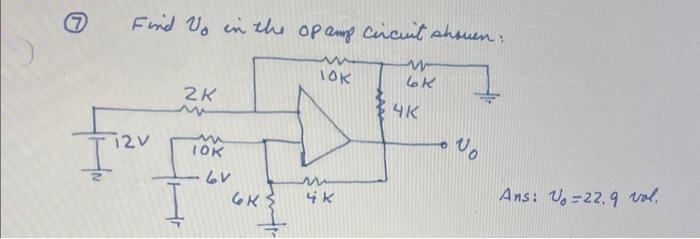 ⑦ Find V₀ in the OP amp circuit shown:
10K
6K
2K
4K
12V
10K
V₀
6V
6K
4K
Ans: V₀ = 22.9 vol.